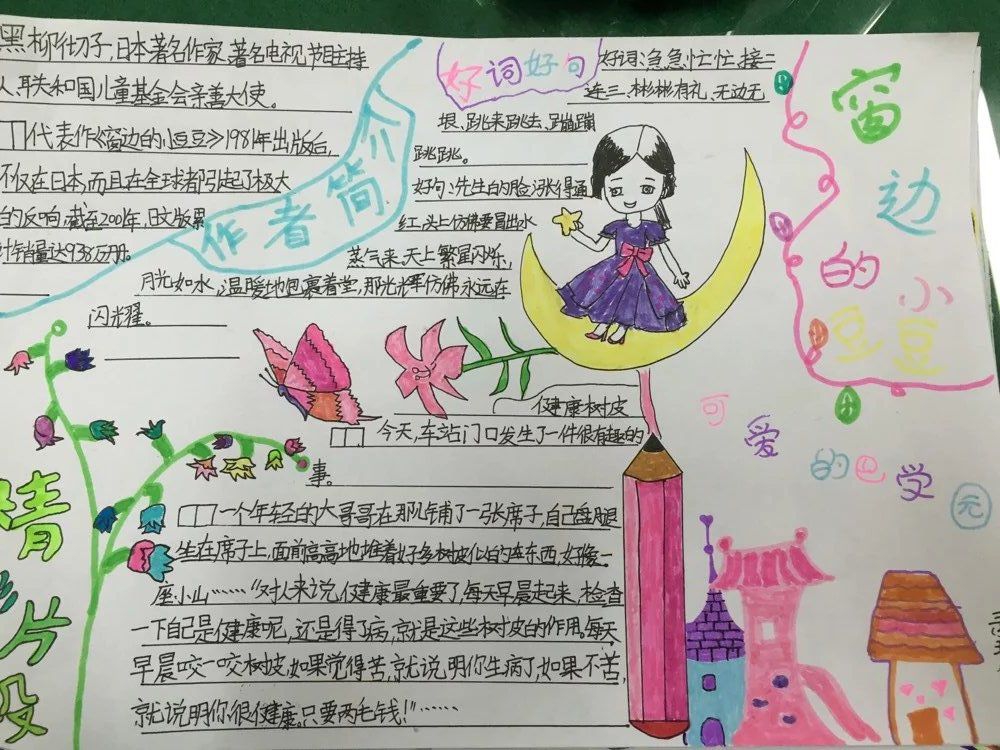 黑柳彻子,日本著名作家,著名电视节目主持
人、联和国儿童基金会亲善大使。
代表作《窗边的小豆豆》1981年出版后,
不仅在日本,而且在全球都引起了极大
的反响,截至2001年,日文版累
计销量达938万册。
作者简介
好词好句
好词:急急忙忙、接二
连三、彬彬有礼、无边无
垠、跳来跳去、蹦蹦
跳跳。
好句:先生的脸涨得通
红,头上仿佛要冒出水
蒸气来,天上繁星闪烁,
月光如水,温暖地包裹着堂,那光辉仿佛永远在
闪光耀。
窗边的小豆豆
可爱的巴学园
健康树皮
今天,车站门口发生了一件很有趣的
事。
一个年轻的大哥哥在那儿铺了一张席子,自己盘腿
坐在席子上,面前高高地堆着好多树皮似的东西,好像一
座小山……“对人来说,健康最重要了,每天早晨起来,检查
一下自己是健康呢,还是得了病,就是这些树皮的作用。每天
早晨咬一咬树皮,如果觉得苦,就说明你生病了,如果不苦,
就说明你很健康。只要两毛钱!”……
片段